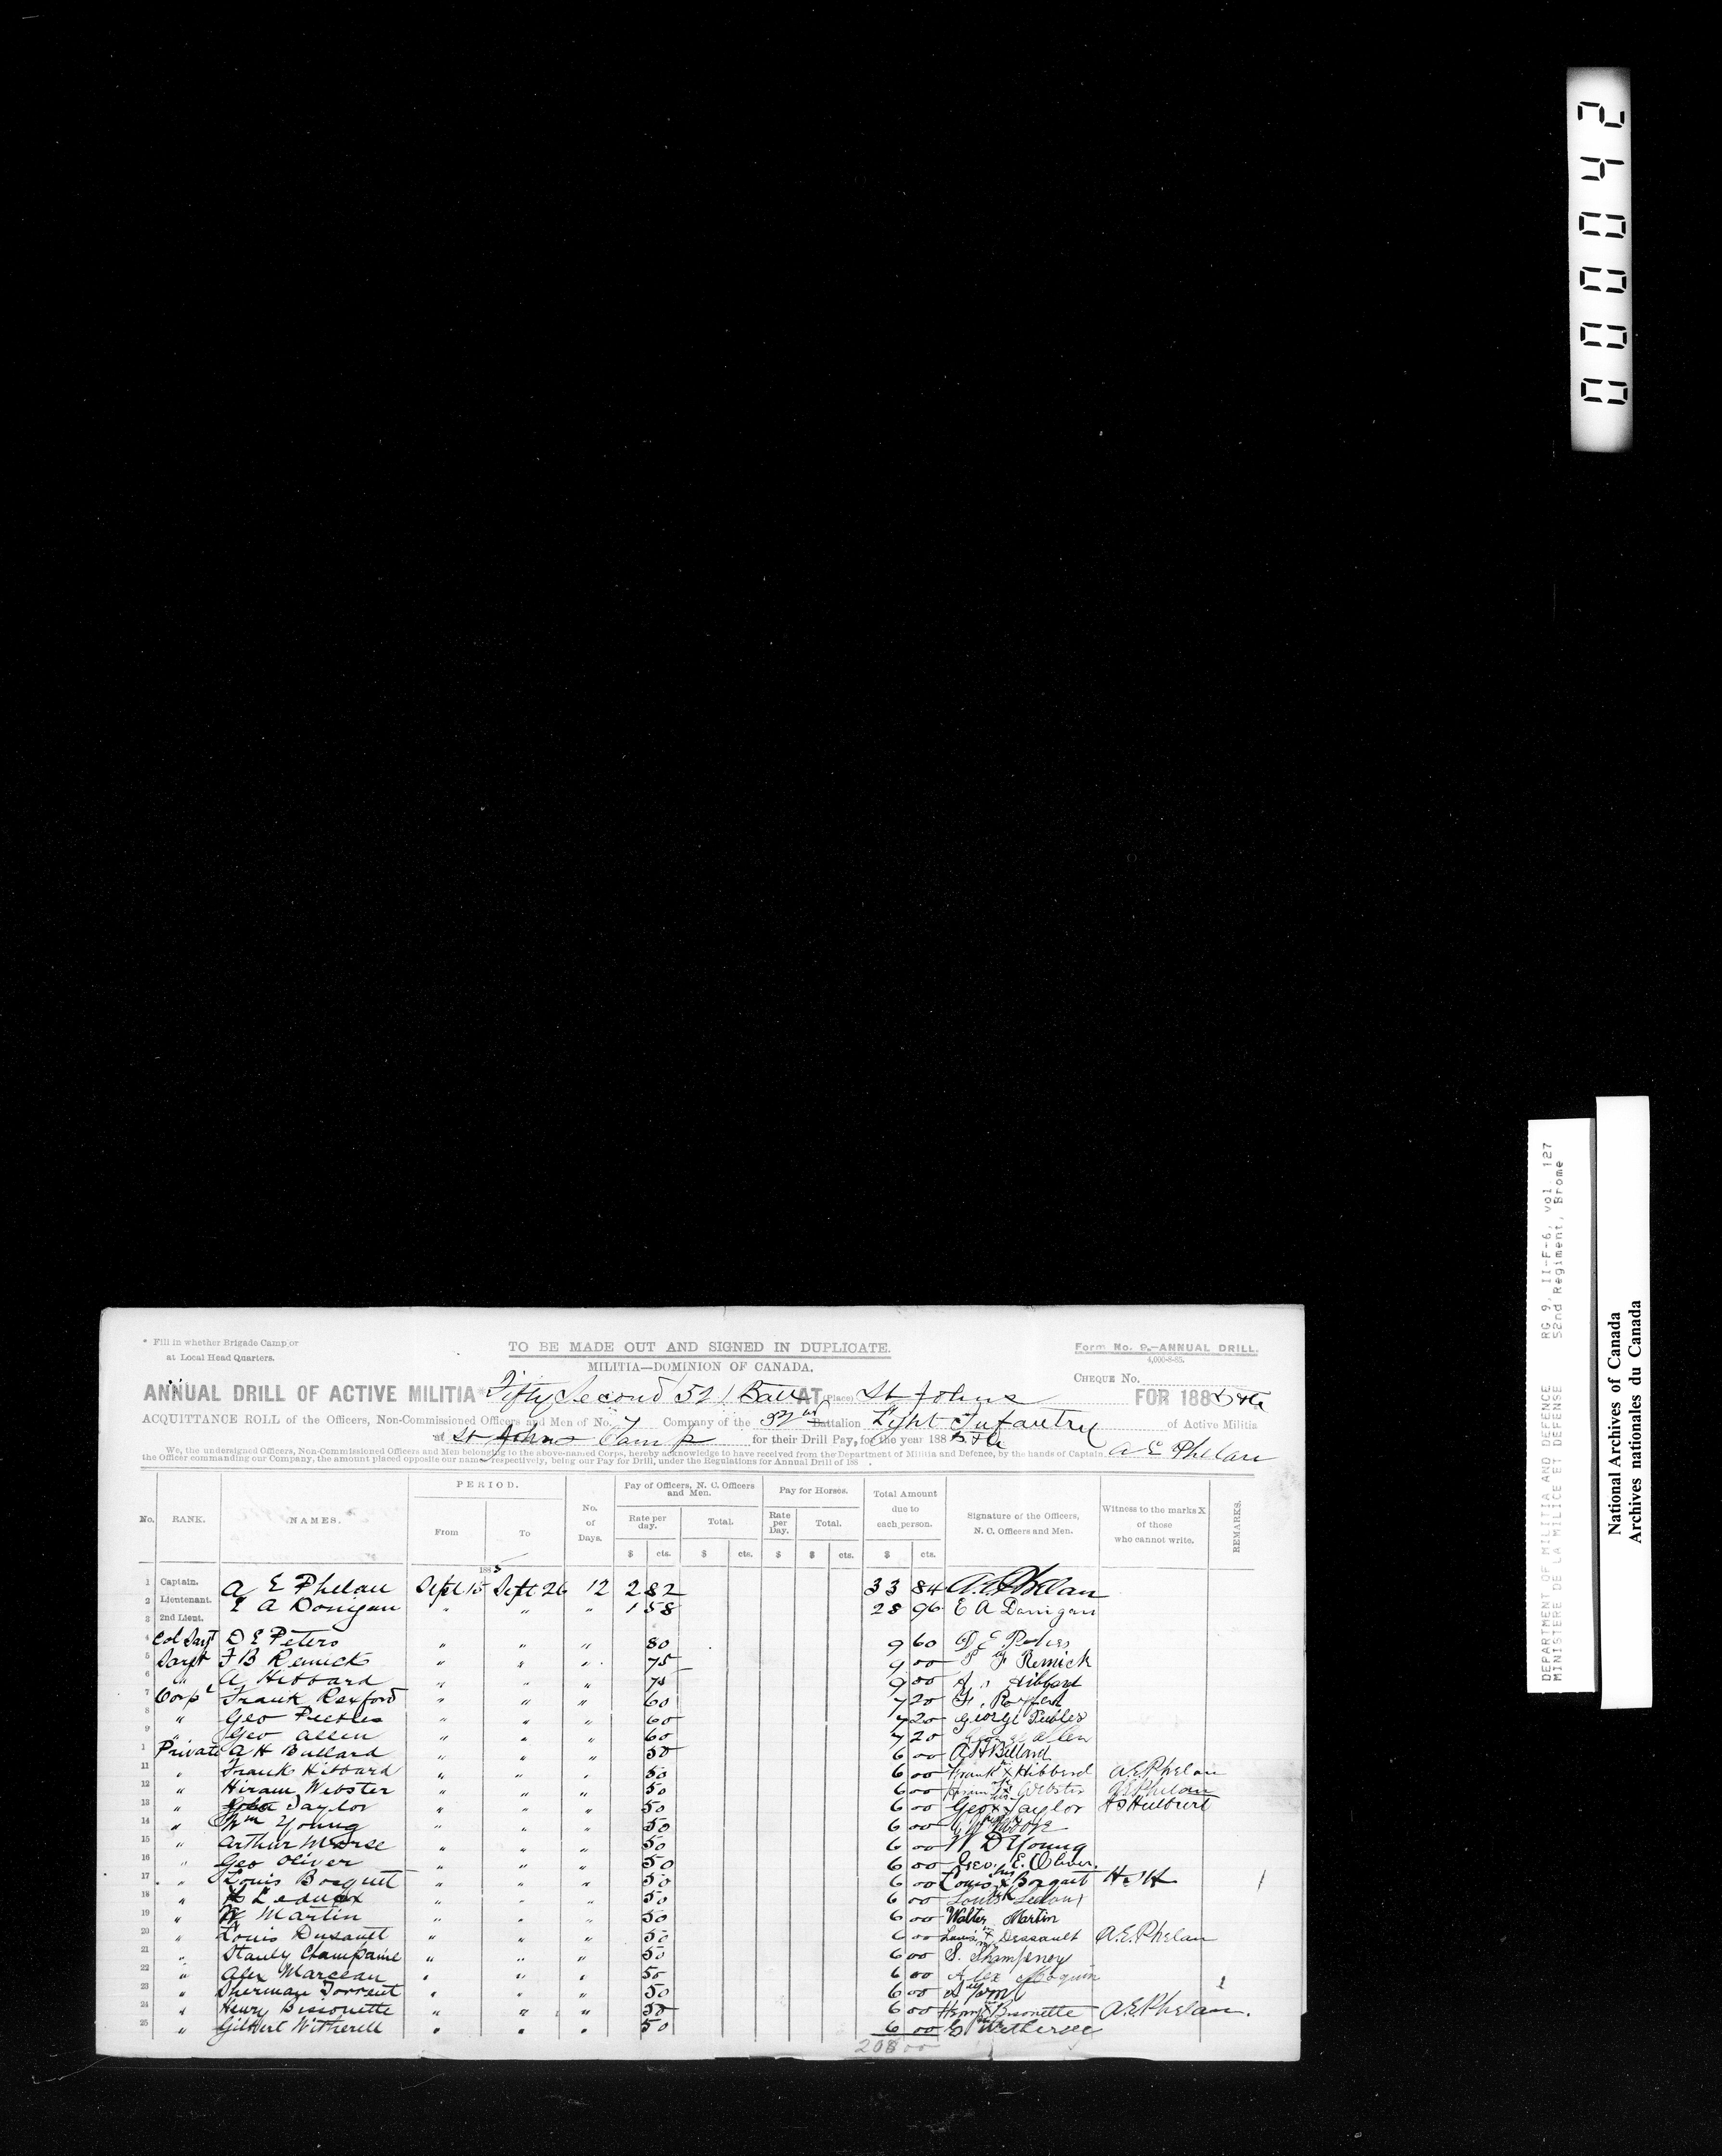 000042
DEPARTMENT OF MILITIA AND DEFENCE RG 9, II-F-6, vol. 127
MINISTERE DE LA MILICE ET DEFENSE 52nd Regiment, Brome
National Archives of Canada
Archives nationales du Canada
* Fill in whether Brigade Camp or
at Local Head Quarters.
TO BE MADE OUT AND SIGNED IN DUPLICATE.
Form No. 9.—ANNUAL DRILL.
4,000-8-85.
MILITIA—DOMINION OF CANADA.
CHEQUE No.
ANNUAL DRILL OF ACTIVE MILITIA* Fifty Second 52 Batt AT (Place) St Johns FOR 1885
ACQUITTANCE ROLL of the Officers, Non-Commissioned Officers and Men of No. 7 Company of the 52nd Battalion Light Infantry of Active Militia
at St Johns Camp for their Drill Pay, for the year 1885
We, the undersigned Officers, Non-Commissioned Officers and Men belonging to the above-named Corps, hereby acknowledge to have received from the Department of Militia and Defence, by the hands of Captain A E Phelan
the Officer commanding our Company, the amount placed opposite our names respectively, being our Pay for Drill, under the Regulations for Annual Drill of 188 .
No. RANK. NAMES. PERIOD. From To No. of Days. Pay of Officers, N. C. Officers and Men. Rate per day. Total. Pay for Horses. Rate per Day. Total. Total Amount due to each person. Signature of the Officers, N. C. Officers and Men. Witness to the marks X of those who cannot write. REMARKS.
$ cts. $ cts. $ $ cts. $ cts.
1885
1 Captain. A E Phelan Sept 15 Sept 26 12 2 82 33 84 A.E. Phelan
2 Lieutenant. E A Donigan " " " 1 58 28 96 E A Donigan
3 2nd Lieut.
4 Col Sargt D E Peters " " " 80 9 60 D E Peters
5 Sargt F B Remick " " " 75 9 00 F Remick
6 " A Hibbard " " " 75 9 00 A Hibbard
7 Corpl Frank Rexford " " " 60 7 20 F. Rexford
8 " Geo Peebles " " " 60 7 20 George Peebles
9 " Geo Allen " " " 60 7 20 George Allen
1 Private A H Bullard " " " 50 6 00 A H Bullard
11 " Frank Hibbard " " " 50 6 00 Frank X Hibberd A.E. Phelan
12 " Hiram Webster " " " 50 6 00 Hiram X Webster A.E. Phelan
13 " Taylor " " " 50 6 00 Geo X Taylor H S Hulburt
14 " Wm Young " " " 50 6 00
15 " Arthur Morse " " " 50 6 00 W D Young
16 " Geo Oliver " " " 50 6 00 Geo. E. Oliver.
17 " Louis Bosquet " " " 50 6 00 Louis X Bosquet
18 " Ledoux " " " 50 6 00 Louis Ledoux
19 " W Martin " " " 50 6 00 Walter Martin
20 " Louis Dusault " " " 50 6 00 Louis X Dessault A.E. Phelan
21 " Stanly Champaine " " " 50 6 00 S. Shampeney
22 " Alex Marceau " " " 50 6 00 Alex
23 " Sherman Torrent " " " 50 6 00
24 " Henry Bissonette " " " 50 6 00 Henry X Bisonette A.E. Phelan.
25 " Gilbert Witherell " " " 50 6 00 G
208 00